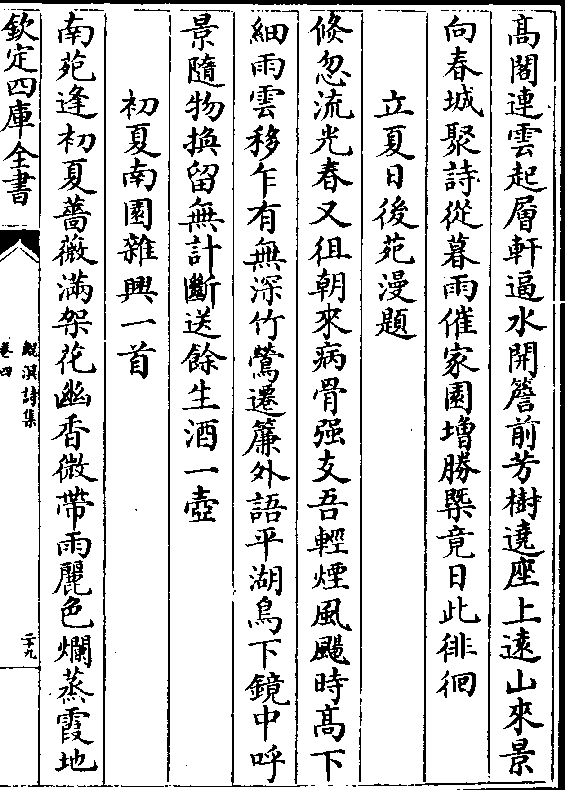 髙閣連雲起層軒逼水開簷前芳樹遶座上逺山來景
向春城聚詩從暮雨催家園増勝槩竟日此徘徊
立夏日後苑漫題
倐忽流光春又徂朝來病骨强支吾輕煙風颺時髙下
細雨雲移乍有無深竹鶯遷簾外語平湖鳥下鏡中呼
景隨物換留無計斷送餘生酒一壺
初夏南園雜興一首
南苑逢初夏薔薇滿架花幽香微帶雨麗色爛蒸霞地
欽定四庫全書
鯤溟詩集
卷四
二十九